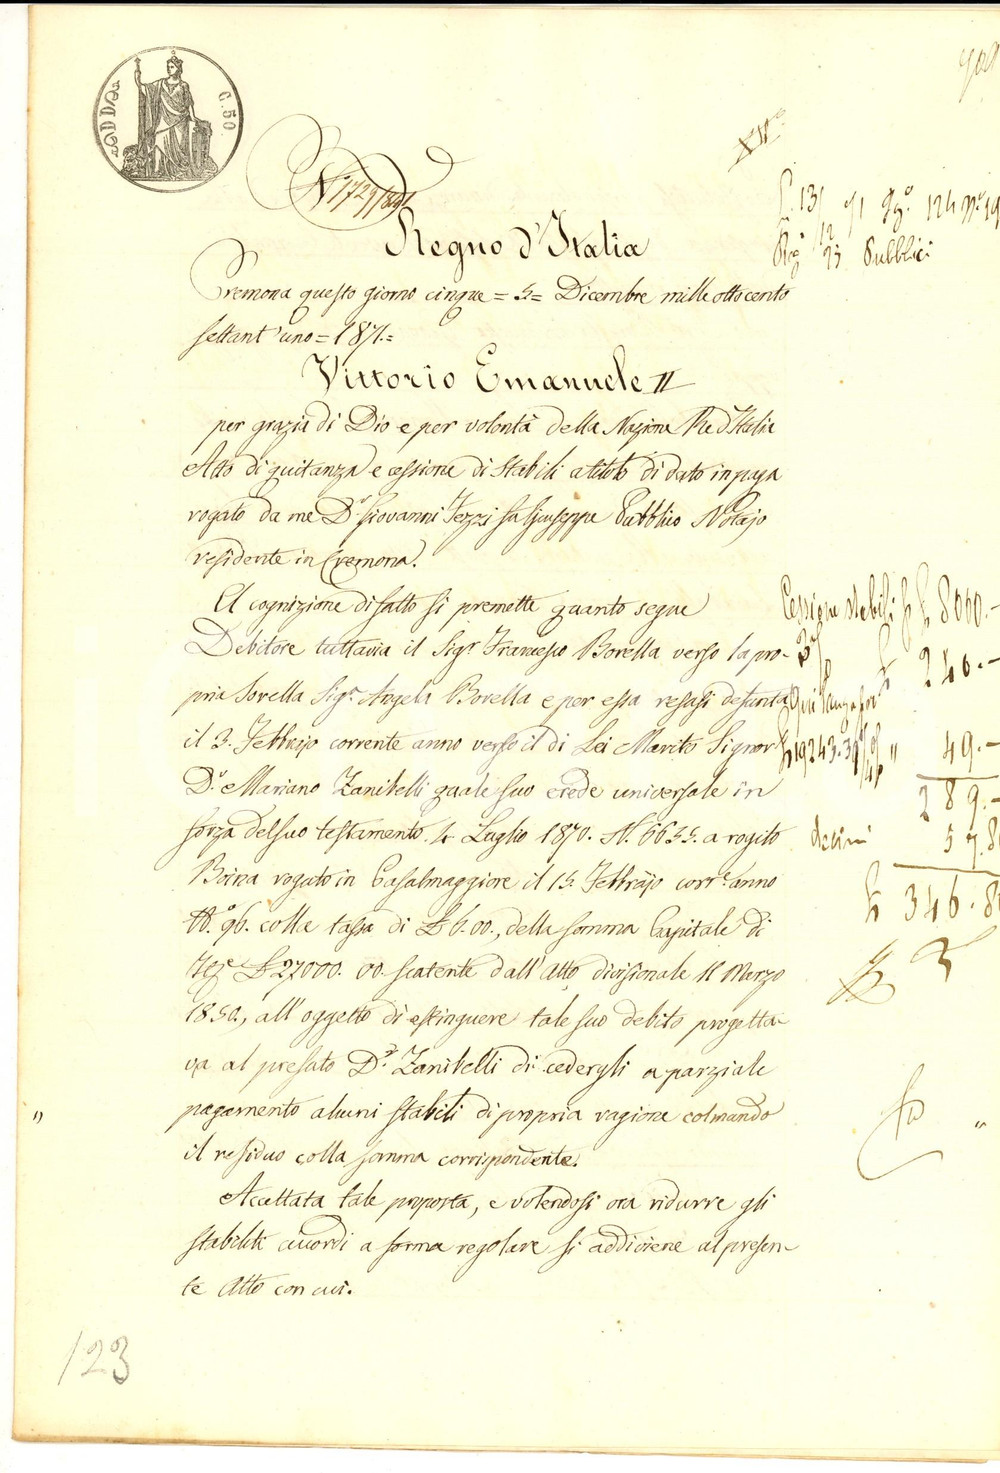 C. 50
N 1729/891
Regno d'Italia
Cremona questo giorno cinque = 5 = Dicembre mille ottocento
settant'uno = 1871. =
Vittorio Emanuele II
per grazia di Dio e per volontà della Nazione Re d'Italia
Atto di quitanza e cessione di stabili a titolo di dato in paga
rogato da me Dr. Giovanni Tezzi fu Giuseppe Pubblico Notajo
residente in Cremona.
A cognizione di fatto si premette quanto segue
Debitore tuttavia il Sigr. Francesco Borella verso la pro-
pria Sorella Sigra. Angela Borella e per essa resasi defunta
il 3. Febbrajo corrente anno verso il di Lei Marito Signor
Dr. Mariano Zanibelli quale suo erede universale in
forza del suo testamento 4 Luglio 1870. N. 6655. a rogito
Boina vogato in Casalmaggiore il 15. Febbrajo corre. anno
N. 96. colla tassa di L 6.00., della somma Capitale di
L 27000. 00. scatente dall'Atto divisionale 11 Marzo
1850., all'oggetto di estinguere tale suo debito progetta-
va al prefato Dr. Zanibelli di cedergli a parziale
pagamento alcuni stabili di propria ragione colmando
il residuo colla somma corrispondente.
Accettata tale proposta, e volendosi ora ridurre gli
stabiliti accordi a forma regolare si addiviene al presen-
te Atto con cui.
Pubblici
Cessione stabili L 8000.-
L 240.-
Quitanza per
L 19243.3 " 49.-
289.-
decimi 57.80
L 346.80
123